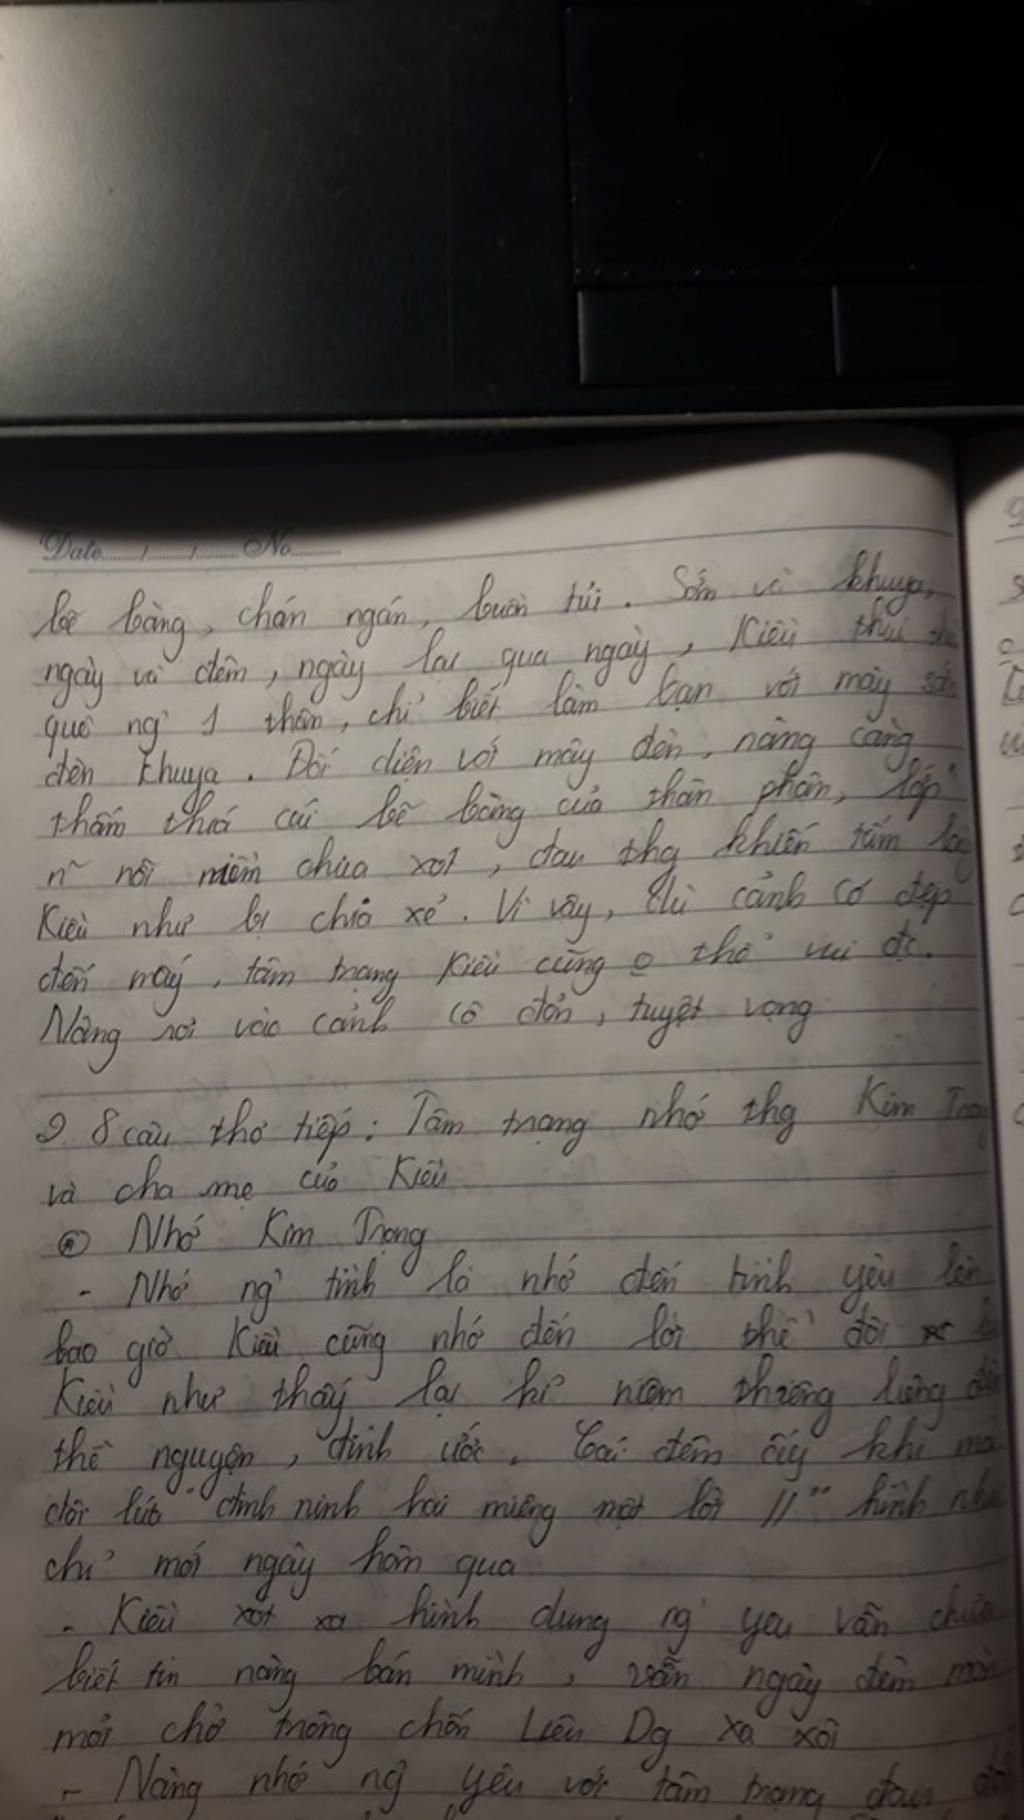 Date No
bẽ bàng, chán ngán, buồn tủi. Sớm và khuya,
ngày và đêm, ngày lại qua ngày, Kiều thui
quê ng' 1 thân, chỉ biết làm bạn với mây
đèn khuya. Đối diện với mây đèn, nàng càng
thấm thía cái bẽ bàng của thân phận, lớp
n~ nỗi niềm chua xót, đau thg khiến tấm lòng
Kiều như bị chia xẻ. Vì vậy, dù cảnh có đẹp
đến mấy, tâm trạng Kiều cũng o thể vui đc.
Nàng rơi vào cảnh cô đơn, tuyệt vọng
2. 8 câu thơ tiếp: Tâm trạng nhớ thg Kim Trọng
và cha mẹ của Kiều
* Nhớ Kim Trọng
- Nhớ ng' tình là nhớ đến tình yêu lên
bao giờ Kiều cũng nhớ đến lời thề đôi
Kiều như thấy lại kỉ niệm thiêng liêng đêm
thề nguyện, đính ước. Cái đêm ấy khi mà
đôi lứa "đinh ninh hai miệng một lời //" hình như
chỉ mới ngày hôm qua
- Kiều xót xa hình dung ng' yêu vẫn chưa
biết tin nàng bán mình, vẫn ngày đêm mòn
mỏi chờ trông chốn Liêu Dg xa xôi
- Nàng nhớ ng' yêu với tâm trạng đau